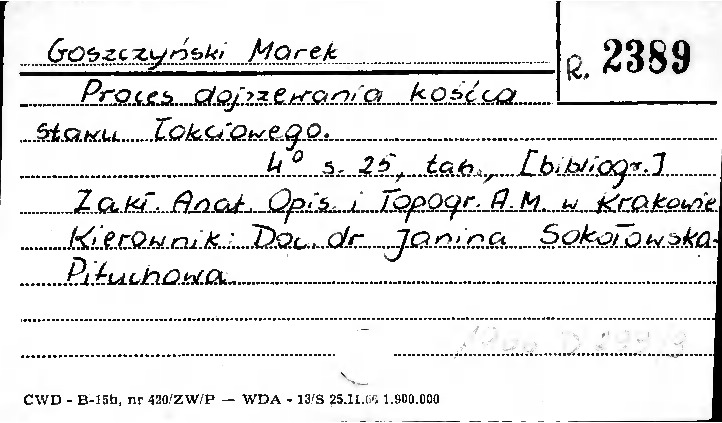 Goszczyński Marek
R. 2389
Proces dojrzewania kośćca
stawu łokciowego.
4° s. 25, tab., [bibliogr.]
Zakł. Anat. Opis. i Topogr. A.M. w Krakowie
Kierownik: Doc. dr Janina Sokołowska-
Pituchowa
CWD - B-15b, nr 420/ZW/P — WDA - 13/S 25.11.66 1.900.000